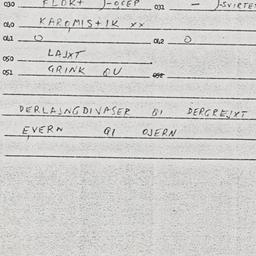 030 FLOKT J-OCEP 031 - J-SVIRTE
040 KAROMIS+IK xx
041 O 042 O
050 LAJXT
051 GRINK QU 052
DERLAJNGDIVASER QI DERGREJXT
EVERN QI OJERN